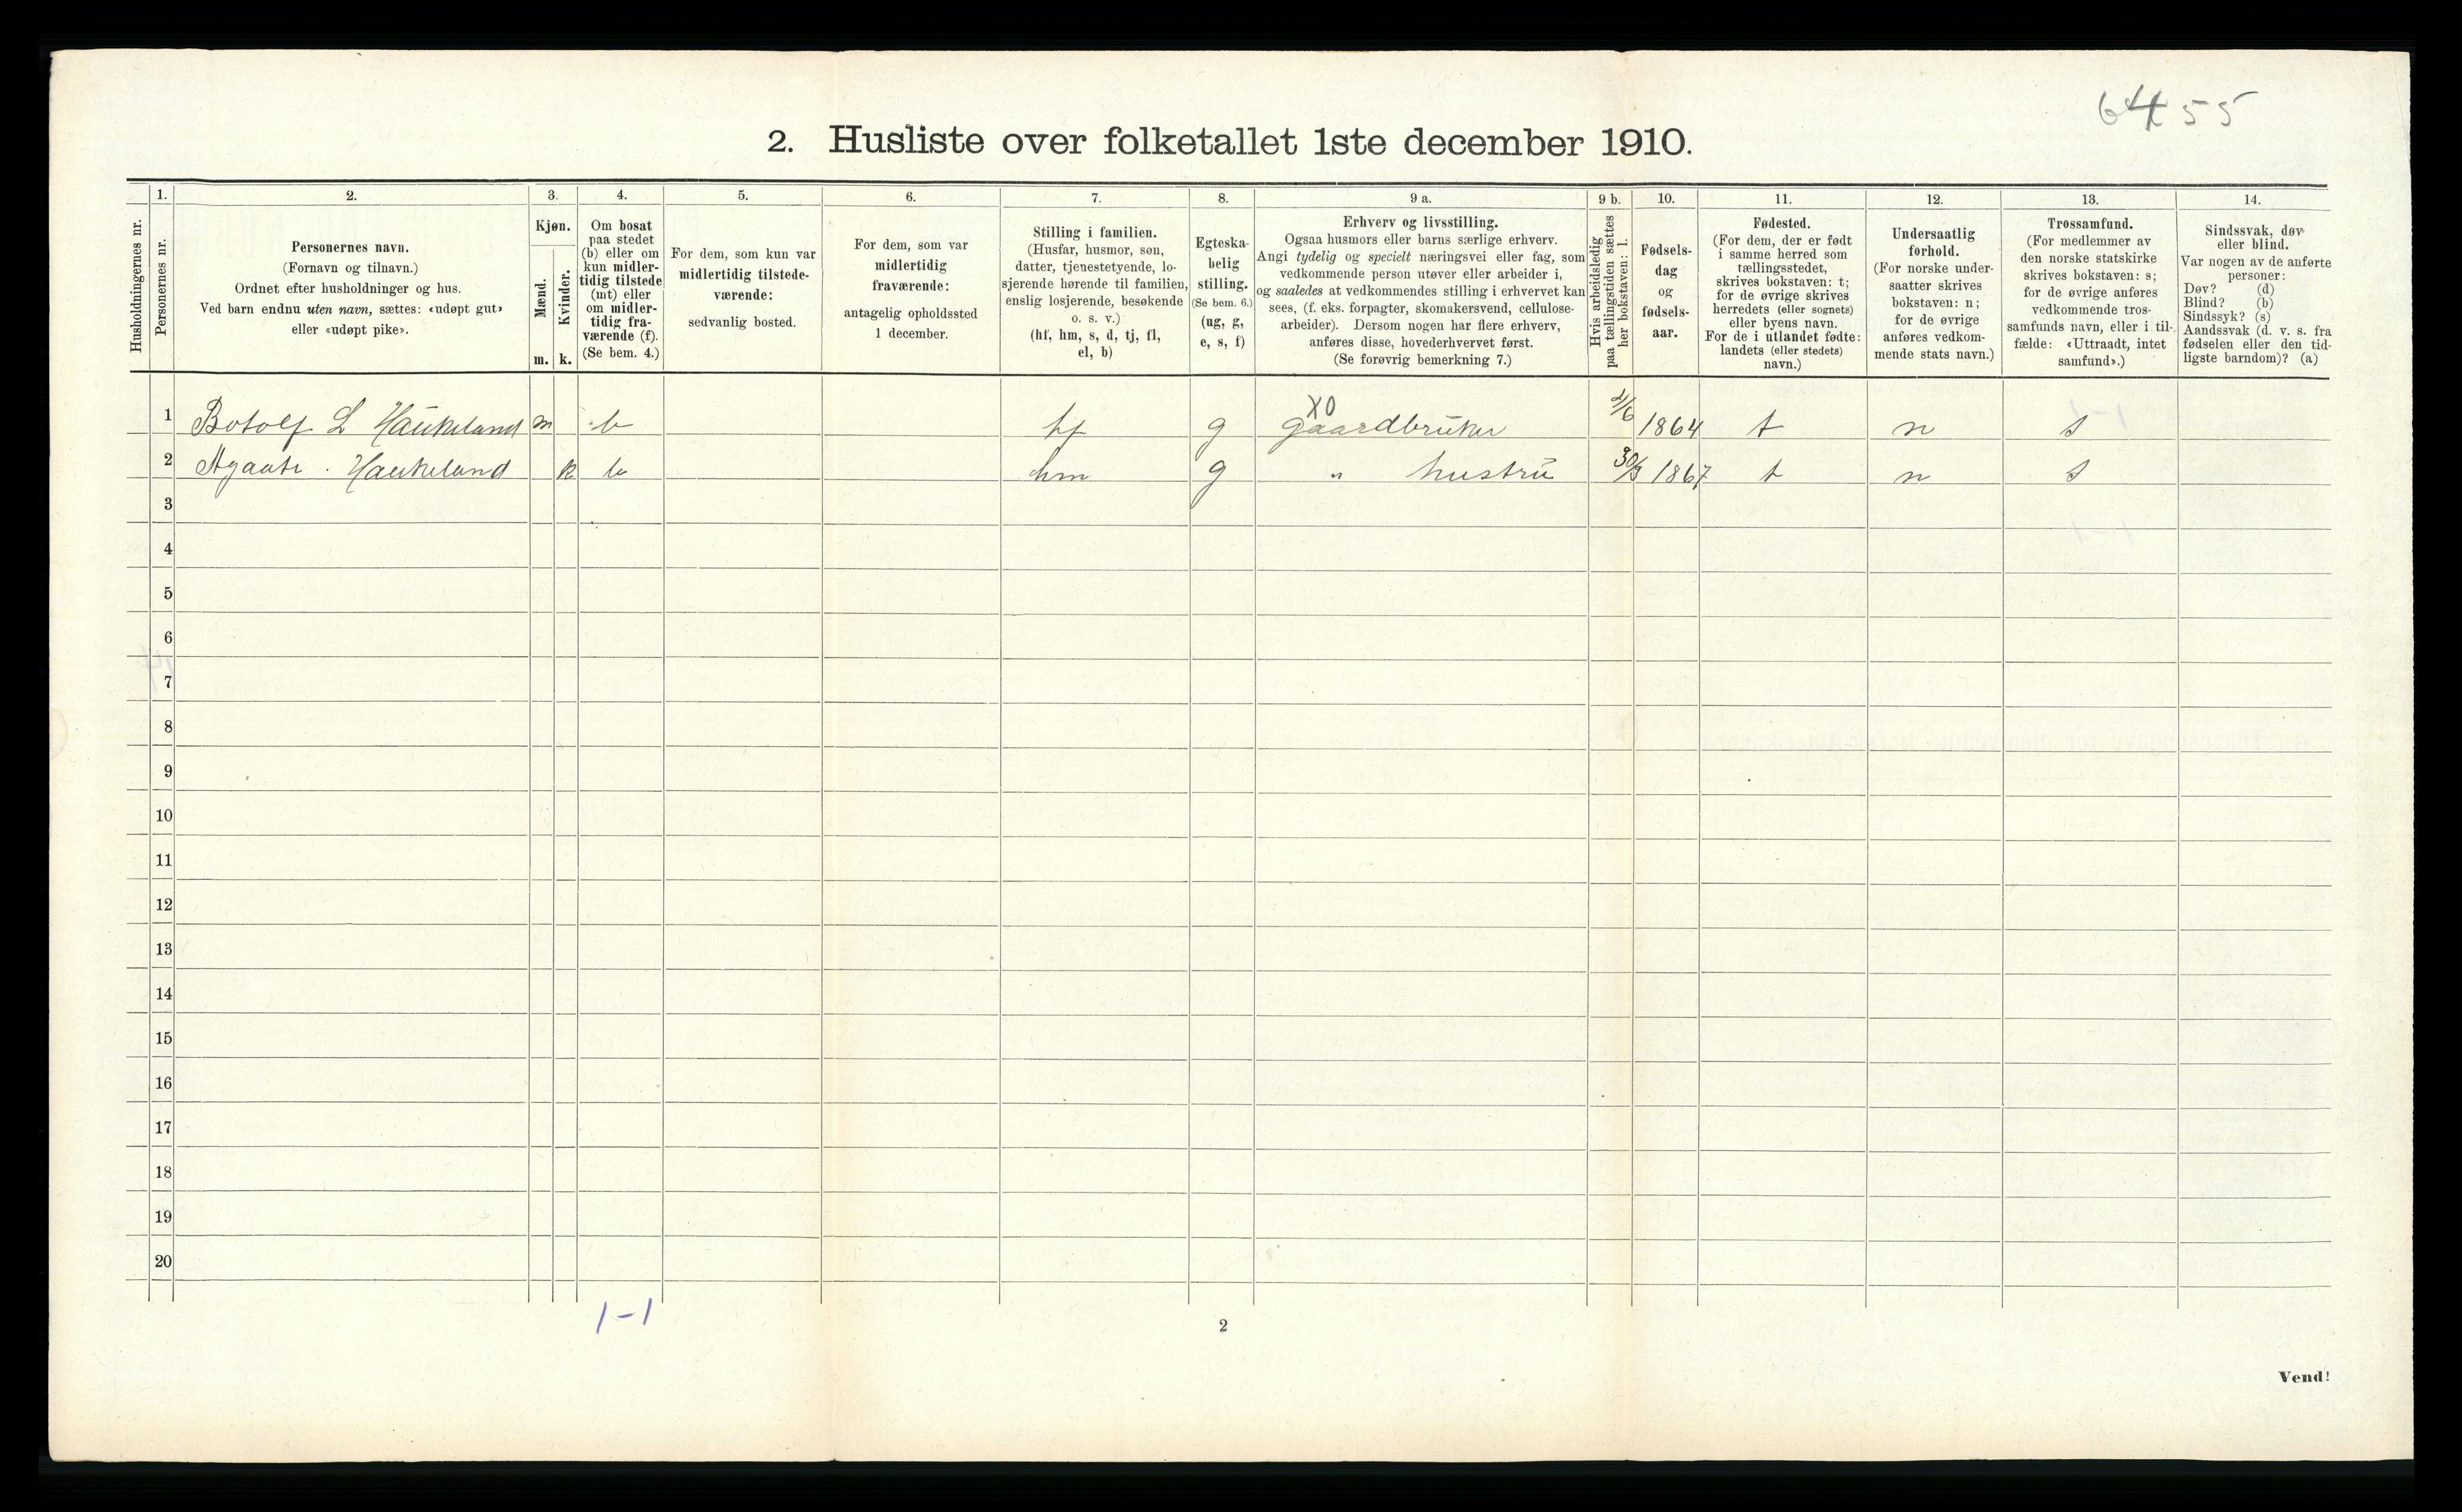 6455
2. Husliste over folketallet 1ste december 1910.
Husholdningernes nr.
1.
Personernes nr.
2.
Personernes navn.
(Fornavn og tilnavn.)
Ordnet efter husholdninger og hus.
Ved barn endnu uten navn, sættes: «udøpt gut»
eller «udøpt pike».
3.
Kjøn.
Mænd.
m.
Kvinder.
k.
4.
Om bosat
paa stedet
(b) eller om
kun midler-
tidig tilstede
(mt) eller
om midler-
tidig fra-
værende (f).
(Se bem. 4.)
5.
For dem, som kun var
midlertidig tilstede-
værende:
sedvanlig bosted.
6.
For dem, som var
midlertidig
fraværende:
antagelig opholdssted
1 december.
7.
Stilling i familien.
(Husfar, husmor, søn,
datter, tjenestetyende, lo-
sjerende hørende til familien,
enslig losjerende, besøkende
o. s. v.)
(hf, hm, s, d, tj, fl,
el, b)
8.
Egteska-
belig
stilling.
(Se bem. 6.)
(ug, g,
e, s, f)
9 a.
Erhverv og livsstilling.
Ogsaa husmors eller barns særlige erhverv.
Angi tydelig og specielt næringsvei eller fag, som
vedkommende person utøver eller arbeider i,
og saaledes at vedkommendes stilling i erhvervet kan
sees, (f. eks. forpagter, skomakersvend, cellulose-
arbeider). Dersom nogen har flere erhverv,
anføres disse, hovederhvervet først.
(Se forøvrig bemerkning 7.)
9 b.
Hvis arbeidsledig
paa tællingstiden sættes
her bokstaven: l.
10.
Fødsels-
dag
og
fødsels-
aar.
11.
Fødested.
(For dem, der er født
i samme herred som
tællingsstedet,
skrives bokstaven: t;
for de øvrige skrives
herredets (eller sognets)
eller byens navn.
For de i utlandet fødte:
landets (eller stedets)
navn.)
12.
Undersaatlig
forhold.
(For norske under-
saatter skrives
bokstaven: n;
for de øvrige
anføres vedkom-
mende stats navn.)
13.
Trossamfund.
(For medlemmer av
den norske statskirke
skrives bokstaven: s;
for de øvrige anføres
vedkommende tros-
samfunds navn, eller i til-
fælde: «Uttraadt, intet
samfund».)
14.
Sindssvak, døv
eller blind.
Var nogen av de anførte
personer:
Døv? (d)
Blind? (b)
Sindssyk? (s)
Aandssvak (d. v. s. fra
fødselen eller den tid-
ligste barndom)? (a)
XO
1 Botolf L Haukeland m b hf g gaardbruker 1864 t n s
2 Agaate. Haukeland k b hm g " hustru 30/3 1867 t n s
3
4
5
6
7
8
9
10
11
12
13
14
15
16
17
18
19
20
1-1
2
Vend!